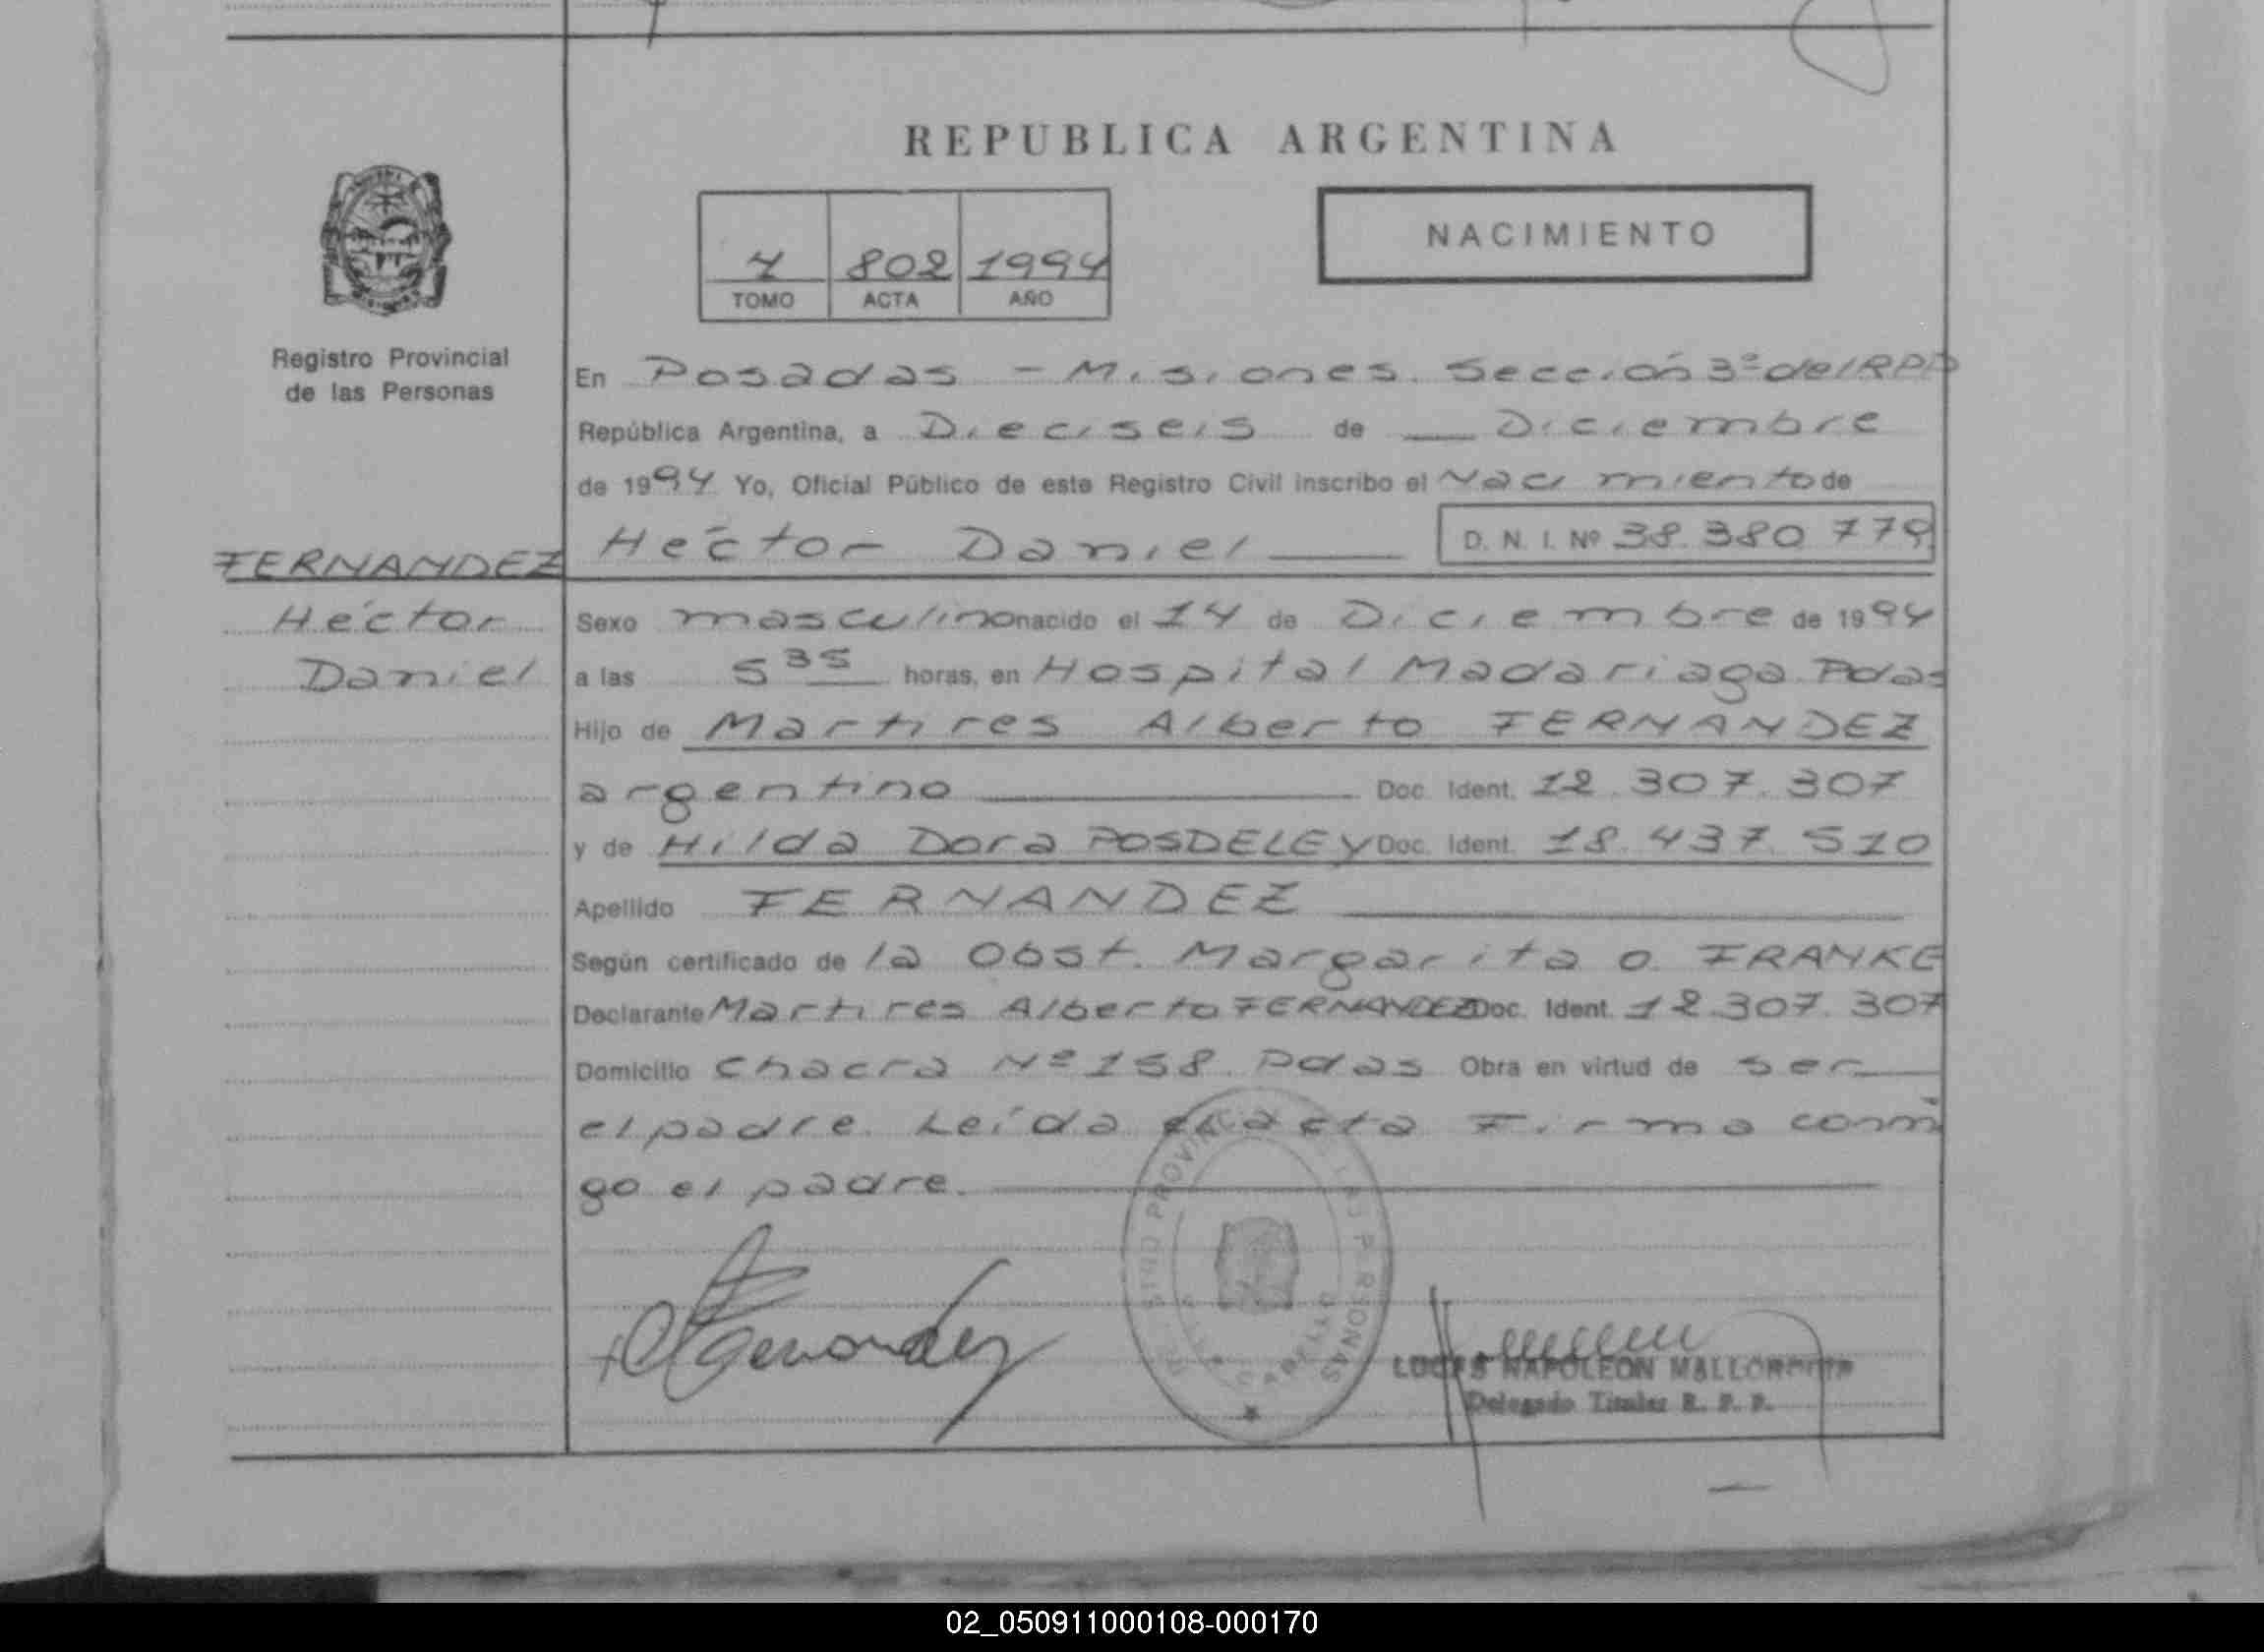 REPUBLICA ARGENTINA
802 1994
TOMO ACTA AÑO
NACIMIENTO
Registro Provincial
de las Personas
En Posadas - Misiones. Sección 3ª del RPP
República Argentina, a Dieciseis de Diciembre
de 1994 Yo, Oficial Público de este Registro Civil inscribo el Nacimiento de
Héctor Daniel D. N. I. Nº 38.380 779
FERNANDEZ
Héctor
Daniel
Sexo masculino nacido el 14 de Diciembre de 1994
a las 5 35 horas, en Hospital Madariaga Pdas
Hijo de Martires Alberto FERNANDEZ
argentino Doc. Ident. 12.307.307
y de Hilda Dora POSDELEY Doc. Ident. 18.437.510
Apellido FERNANDEZ
Según certificado de la Obst. Margarita O. FRANKE
Declarante Martires Alberto FERNANDEZ Doc. Ident. 12.307.307
Domicilio Chacra Nº 158. Pdas Obra en virtud de ser
el padre. Leída el acta Firma conmi
go el padre.
Fernandez
NAPOLEON
Delegado Titular R. P. P.
02_050911000108-000170